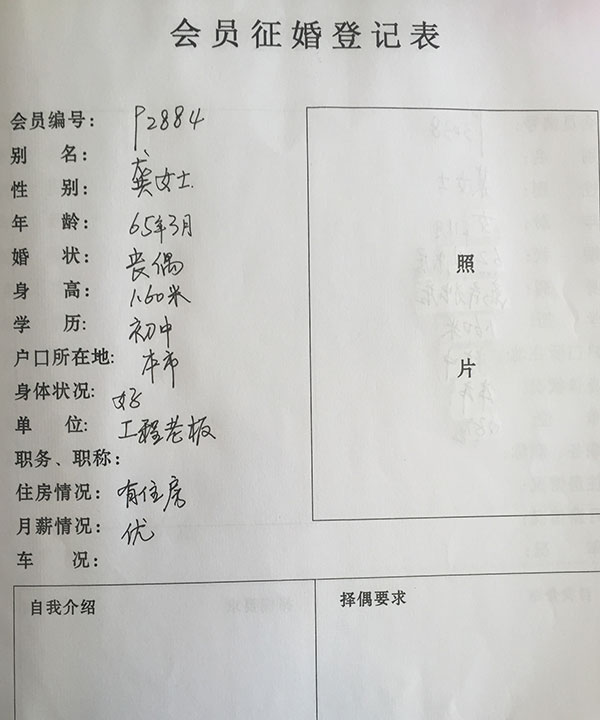 会员征婚登记表
会员编号： P2884
别 名： 龚女士
性 别：
年 龄： 65年3月
婚 状： 丧偶
身 高： 1.60米
学 历： 初中
户口所在地: 本市
身体状况: 好
单 位: 工程老板
职务、职称：
住房情况： 有住房
月薪情况： 优
车 况：
照
片
自我介绍
择偶要求